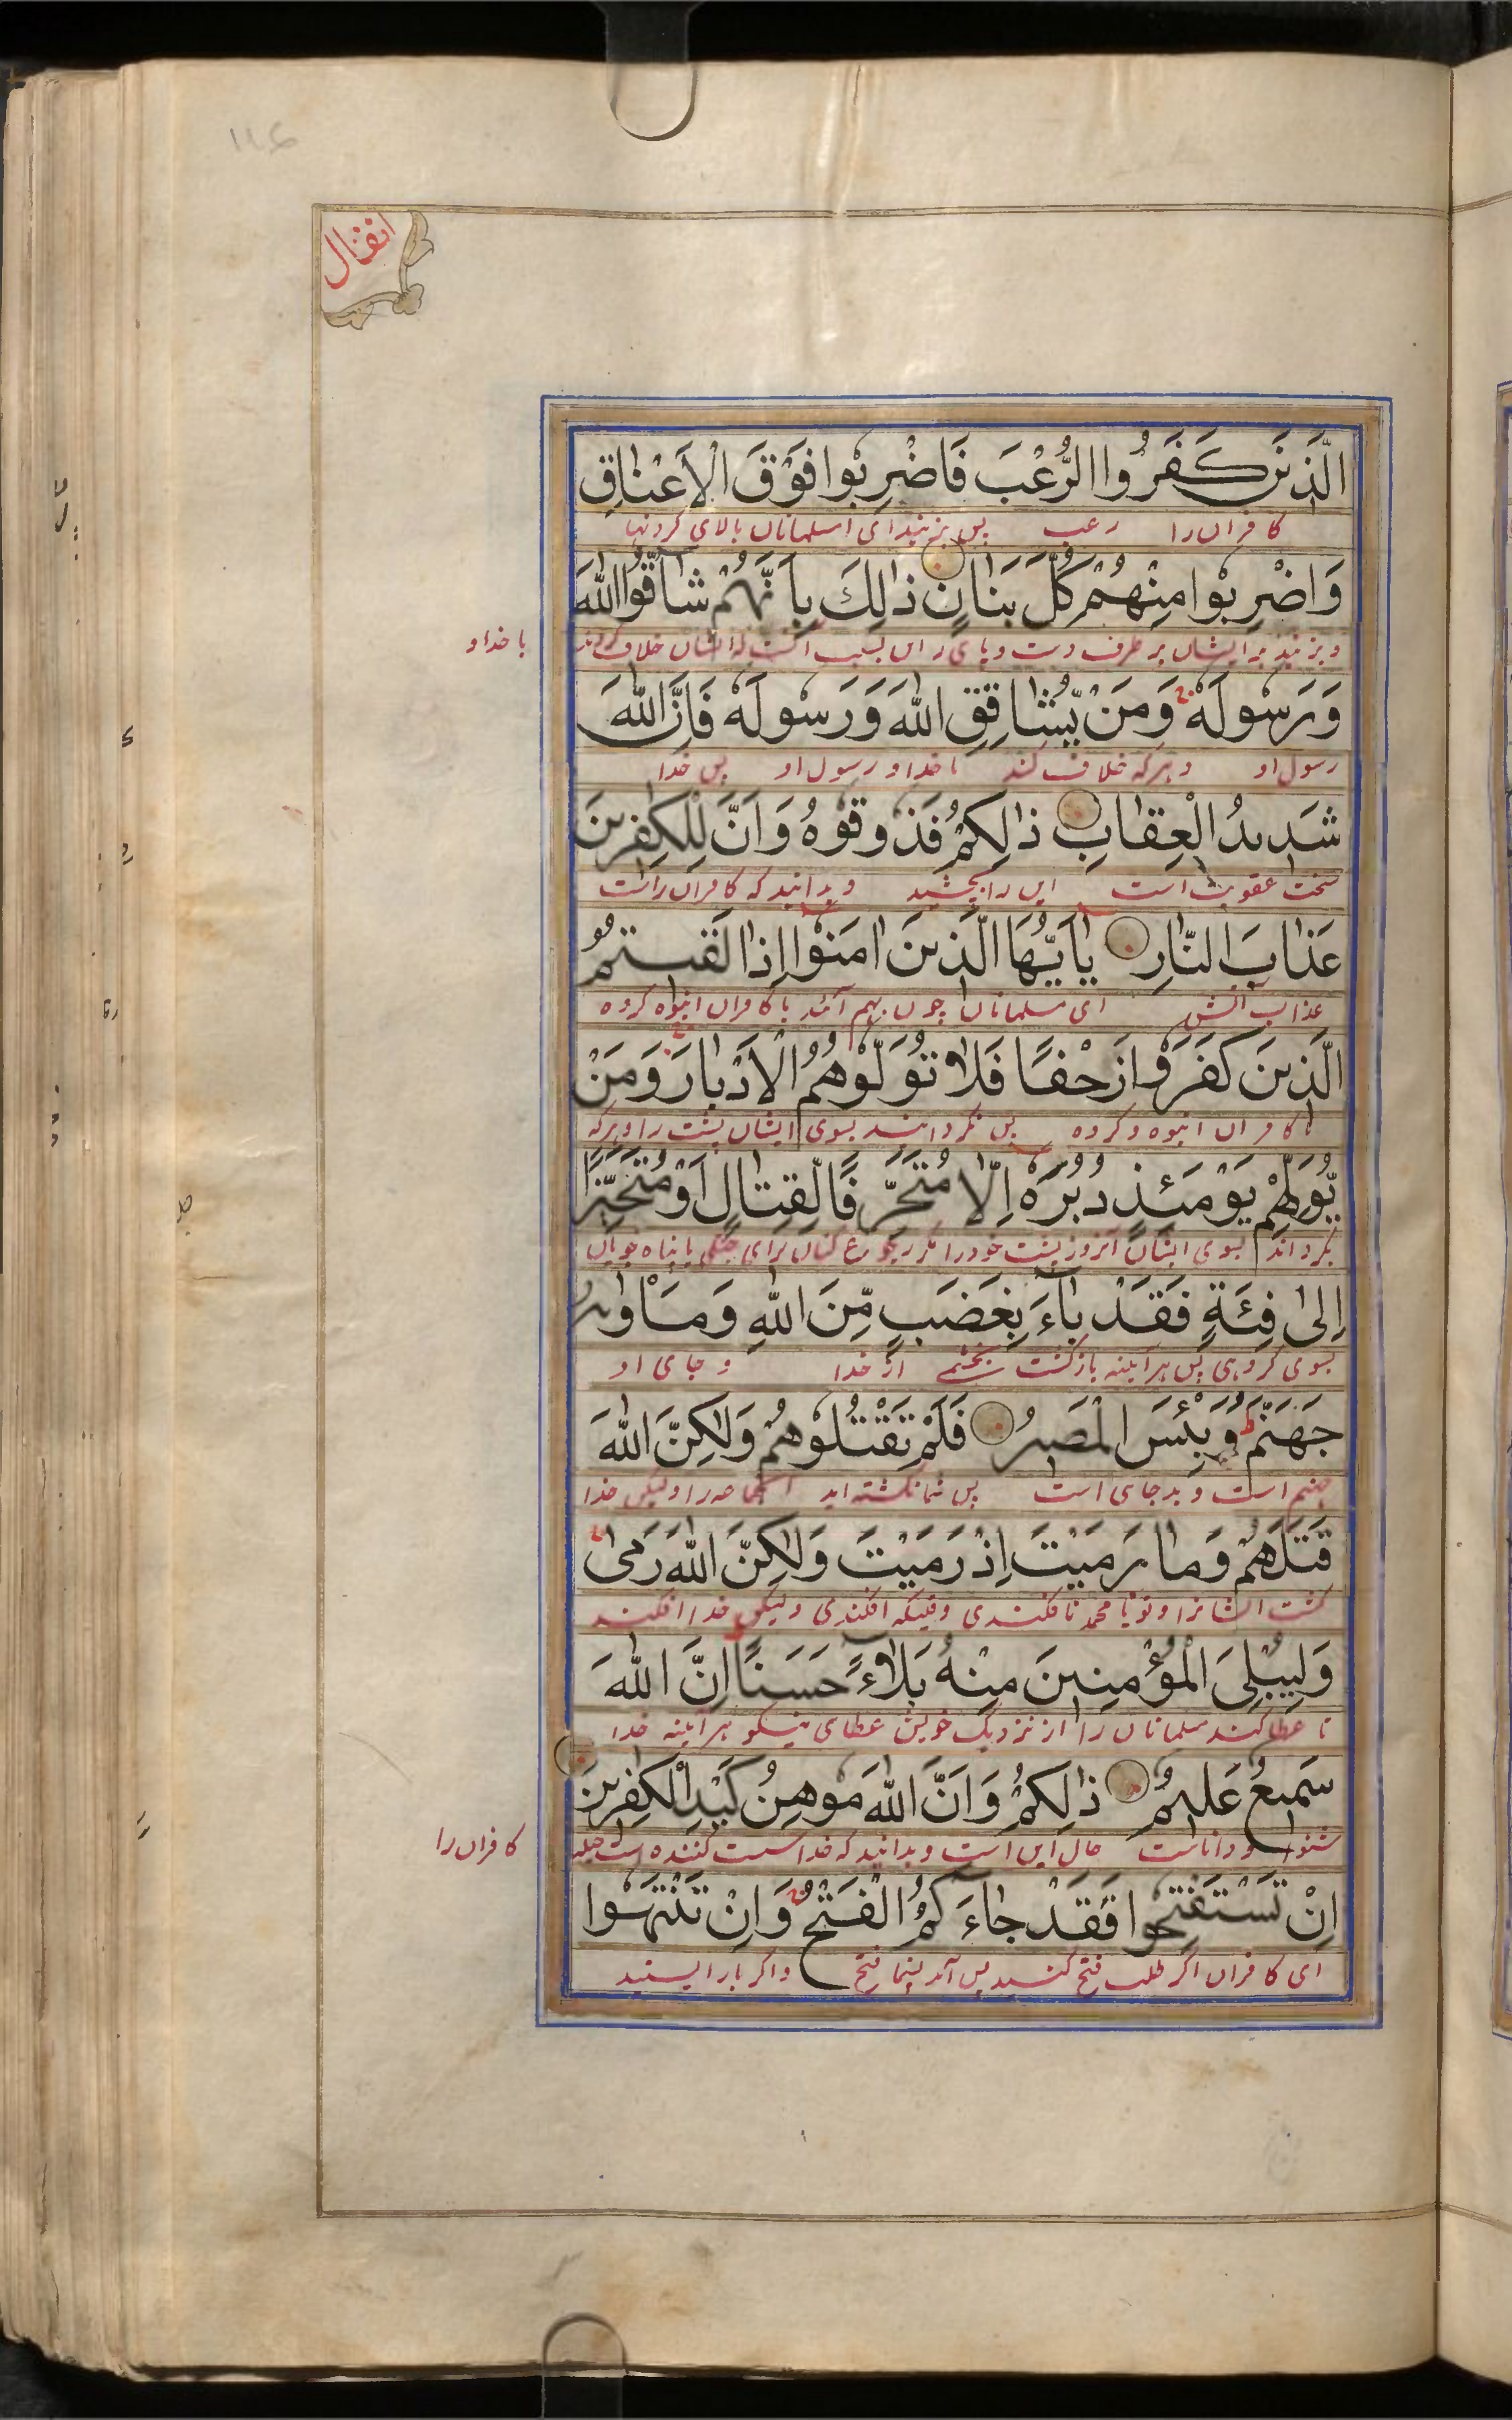 انفال
الَّذينَ كَفَرُوا الرُّعْبَ فَاضْرِبُوا فَوْقَ الْاَعْنَاقِ
کافران را رعب پس بزنید ای مسلمانان بالای گردنها
وَاضْرِبُوا مِنْهُمْ كُلَّ بَنَانٍ ذٰلِكَ بِاَنَّهُمْ شَاقُّوا اللهَ
و بزنید از ایشان هر طرف دست و پای را این بسبب آنست که ایشان خلاف کردند
با خدا و
وَرَسُولَهُ وَمَنْ يُّشَاقِقِ اللهَ وَرَسُولَهُ فَاِنَّ اللهَ
رسول او و هرکه خلاف کند با خدا و رسول او پس خدا
شَدِيدُ الْعِقَابِ ذٰلِكُمْ فَذُوقُوهُ وَاَنَّ لِلْكٰفِرِينَ
سخت عقوبت است این را بچشید و بدانید که کافران راست
عَذَابَ النَّارِ يٰاَيُّهَا الَّذِينَ اٰمَنُوا اِذَا لَقِيتُمُ
عذاب آتش ای مسلمانان چون بهم آئید با کافران انبوه کرده
الَّذِينَ كَفَرُوا زَحْفًا فَلَا تُوَلُّوهُمُ الْاَدْبَارَ وَمَنْ
با کافران انبوه کرده پس نگردانید بسوی ایشان پشت را و هرکه
يُّوَلِّهِمْ يَوْمَئِذٍ دُبُرَهُ اِلَّا مُتَحَرِّفًا لِّقِتَالٍ اَوْ مُتَحَيِّزًا
بگرداند بسوی ایشان آنروز پشت خود را مگر رجوع کنان برای جنگی یا پناه جویان
اِلٰى فِئَةٍ فَقَدْ بَاءَ بِغَضَبٍ مِّنَ اللهِ وَمَاْوٰىهُ
بسوی گروهی پس هرآینه بازگشت بخشم از خدا و جای او
جَهَنَّمُ وَبِئْسَ الْمَصِيرُ فَلَمْ تَقْتُلُوهُمْ وَلٰكِنَّ اللهَ
جهنم است و بد جای است پس شما نکشته اید را ولیکن خدا
قَتَلَهُمْ وَمَا رَمَيْتَ اِذْ رَمَيْتَ وَلٰكِنَّ اللهَ رَمٰى
کشت ایشانرا و تو یا محمد نافکندی وقتیکه افکندی ولیکن خدا افکند
وَلِيُبْلِىَ الْمُؤْمِنِينَ مِنْهُ بَلَاءً حَسَنًا اِنَّ اللهَ
تا عطا کند مسلمانان را از نزدیک خویش عطای نیکو هرآینه خدا
سَمِيعٌ عَلِيمٌ ذٰلِكُمْ وَاَنَّ اللهَ مُوهِنُ كَيْدِ الْكٰفِرِينَ
شنوا و داناست حال این است و بدانید که خدا سست کننده است حیله
کافران را
اِنْ تَسْتَفْتِحُوا فَقَدْ جَاءَكُمُ الْفَتْحُ وَاِنْ تَنْتَهُوا
ای کافران اگر طلب فتح کنید پس آمد بشما فتح و اگر باز ایستید